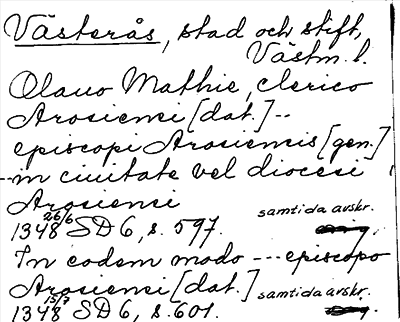 Västerås, stad och stift,
Västm. l.
Olauo Mathie, clerico
Arosiensi [dat.] --
episcopi Arosiensis [gen.]
-- in ciuitate vel diocesi
Arosiensi
1348 26/6 SD 6, s. 597. samtida avskr.
In eodem modo --- episcopo
Arosiensi [dat.] samtida avskr.
1348 15/7 SD 6, s. 601.